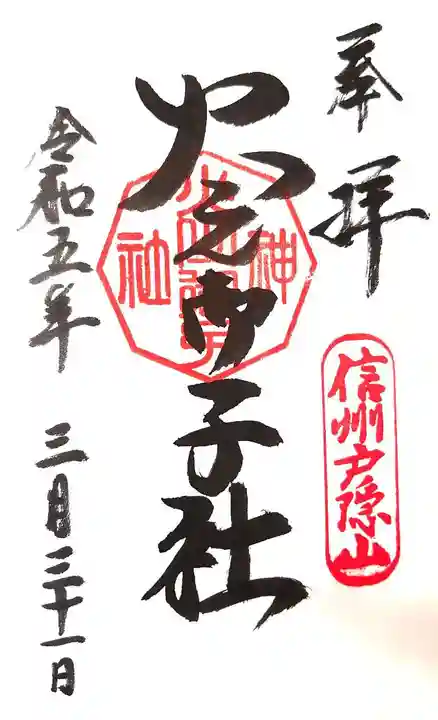 奉拝
信州戸隠山
火之御子社
神社
令和五年 三月三十一日